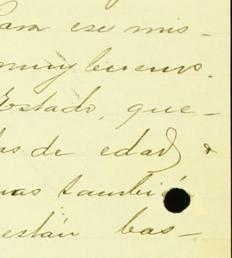 Para ese mis-
muy buenos.
Estado, que-
as de edad &
nas tambié
están bas-